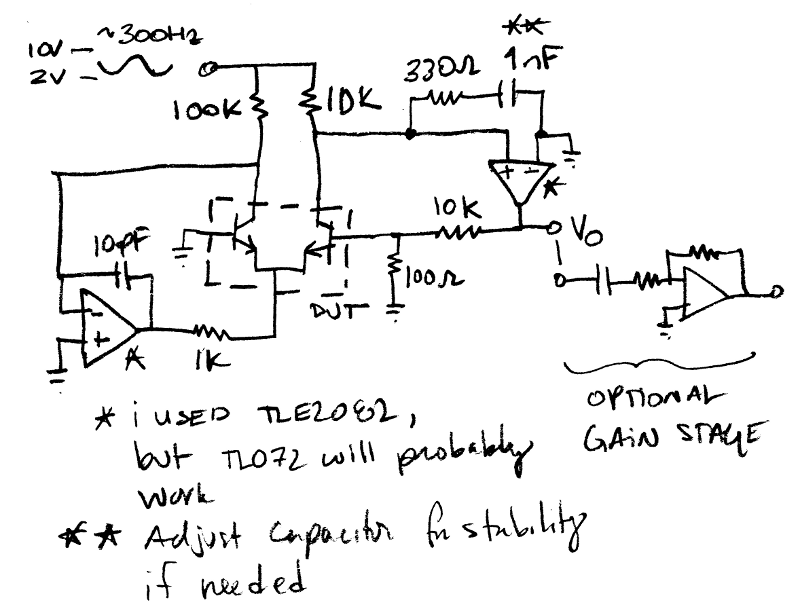 10V ~300Hz
2V
**
330Ω 1nF
100K 10K
+ -
*
10K
Vo
10pF
100Ω
DUT
-
+
*
1K
OPTIONAL
GAIN STAGE
* i USED TLE2082,
but TL072 will probably
work
** Adjust capacitor for stability
if needed